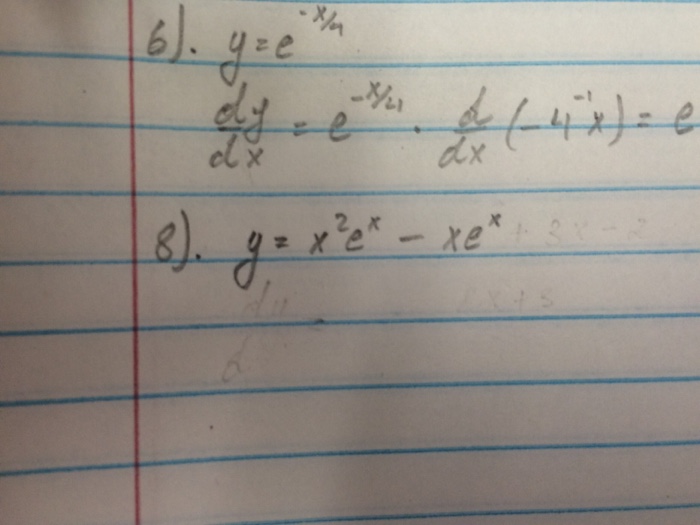 6). y = e^{-x/4}
dy/dx = e^{-x/4} · d/dx (-4^{-1}x) = e
8). y = x²e^x - xe^x